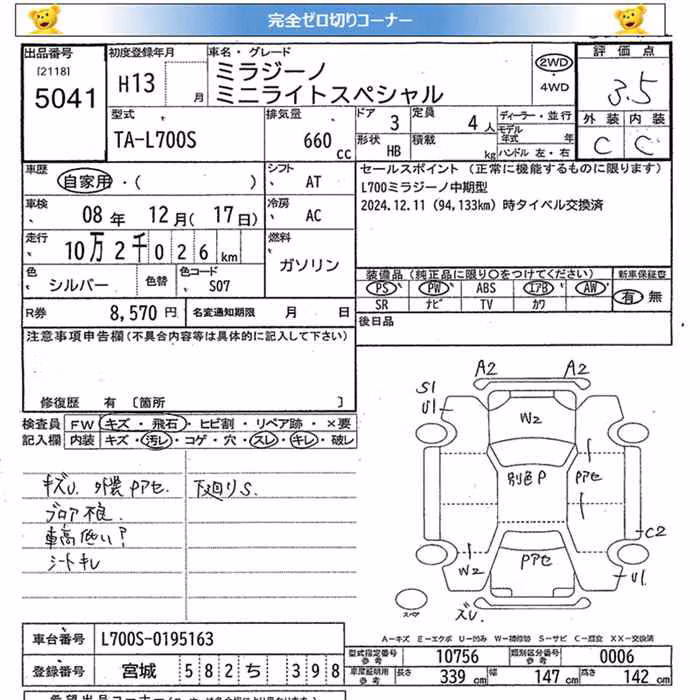 完全ゼロ切りコーナー
出品番号 [2118] 5041
初度登録年月 H13 月
車名・グレード ミラジーノ ミニライトスペシャル
2WD ・4WD
評価点 3.5
外装 内装
C C
型式 TA-L700S
排気量 660 cc
ドア 3
定員 4 人
形状 HB
積載 kg
ディーラー・並行
モデル年式 年
ハンドル 左・右
車歴 自家用・( )
シフト AT
車検 08年 12月(17日)
冷房 AC
走行 10万2千026km
燃料 ガソリン
色 シルバー
色替
色コード S07
R券 8,570円
名変通知期限 月 日
セールスポイント (正常に機能するものに限ります)
L700ミラジーノ中期型
2024.12.11(94,133km)時タイベル交換済
装備品(純正品に限り○をつけてください)
新車保証書
PS PW ABS エアB AW
有 無
SR ナビ TV カワ
後日品
注意事項申告欄(不具合内容等は具体的に記入して下さい)
修復歴 有 [箇所 ]
検査員 FW キズ・飛石・ヒビ割・リペア跡・×要
記入欄 内装 キズ・汚レ・コゲ・穴・スレ・キレ・破レ
キズU. 外装Pアセ. 下廻りS.
ブロア不良.
車高低い?
シートキレ
A2 A2
S1
U1
W2
別色P
Pアセ
C2
W2
Pアセ
U1
スペア
ズU.
A-キズ E-エクボ U-凹み W-補修跡 S-サビ C-腐食 XX-交換済
車台番号 L700S-0195163
登録番号 宮城 582 ち 398
型式指定番号 参考 10756
類別区分番号 参考 0006
車庫証明用 参考 長さ 339 cm 幅 147 cm 高さ 142 cm